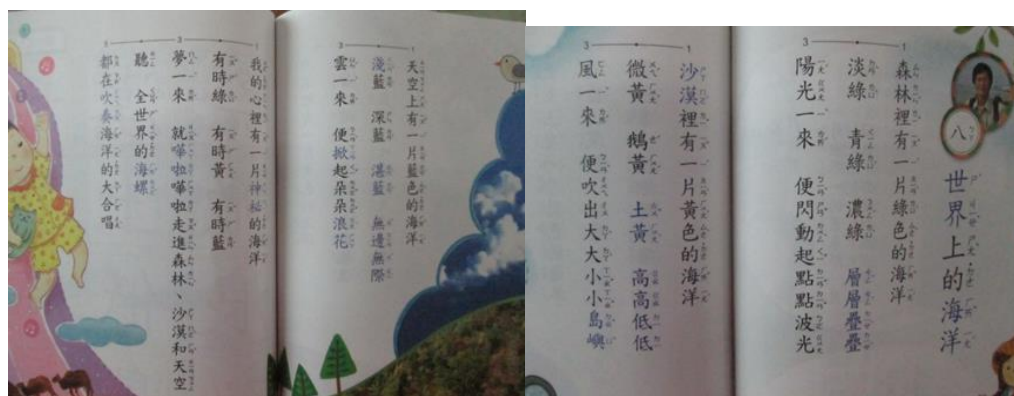 八
世界上的海洋
1
森林裡有一片綠色的海洋
淡綠 青綠 濃綠 層層疊疊
3
陽光一來 便閃動起點點波光
1
沙漠裡有一片黃色的海洋
微黃 鵝黃 土黃 高高低低
3
風一來 便吹出大大小小島嶼
1
天空上有一片藍色的海洋
淺藍 深藍 湛藍 無邊無際
3
雲一來 便掀起朵朵浪花
1
我的心裡有一片神祕的海洋
有時綠 有時黃 有時藍
3
夢一來 就嘩啦嘩啦走進森林、沙漠和天空
聽 全世界的海螺
5
都在吹奏海洋的大合唱